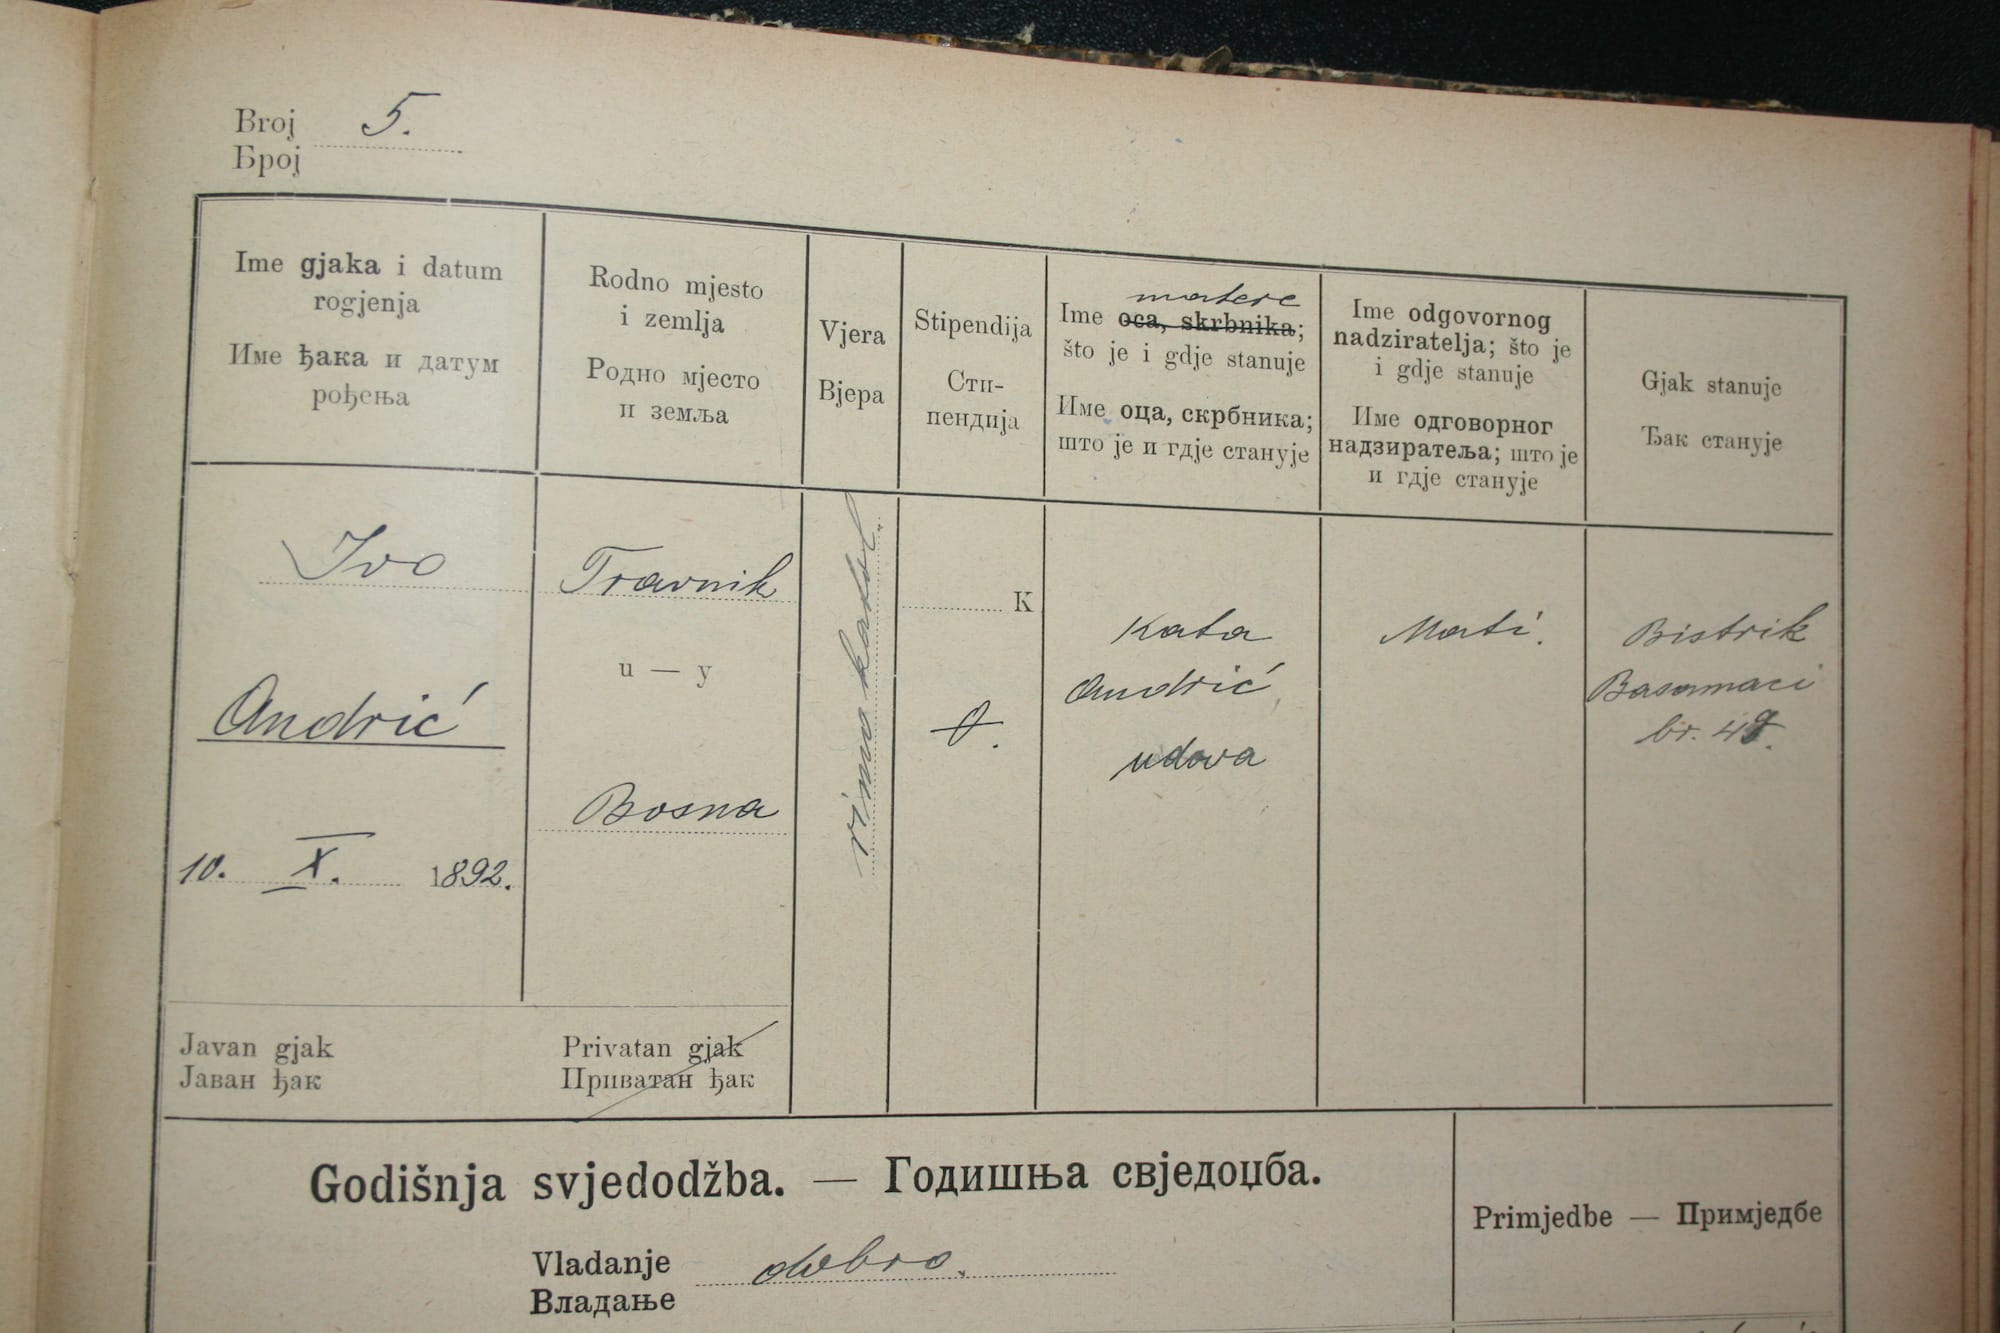 Broj 5.
Број
Ime gjaka i datum
rogjenja
Име ђака и датум
рођења
Rodno mjesto
i zemlja
Родно мјесто
и земља
Vjera
Вјера
Stipendija
Сти-
пендија
matere
Ime oca, skrbnika;
što je i gdje stanuje
Име оца, скрбника;
што је и гдје станује
Ime odgovornog
nadziratelja; što je
i gdje stanuje
Име одговорног
надзиратеља; што је
и гдје станује
Gjak stanuje
Ђак станује
Ivo
Andrić
10. X. 1892.
Travnik
u — у
Bosna
rimo katol.
K
Kata
Andrić,
udova
Mati.
Bistrik
Basamaci
br.
Javan gjak
Јаван ђак
Privatan gjak
Приватан ђак
Godišnja svjedodžba. — Годишња свједоџба.
Primjedbe — Примједбе
Vladanje dobro.
Владање